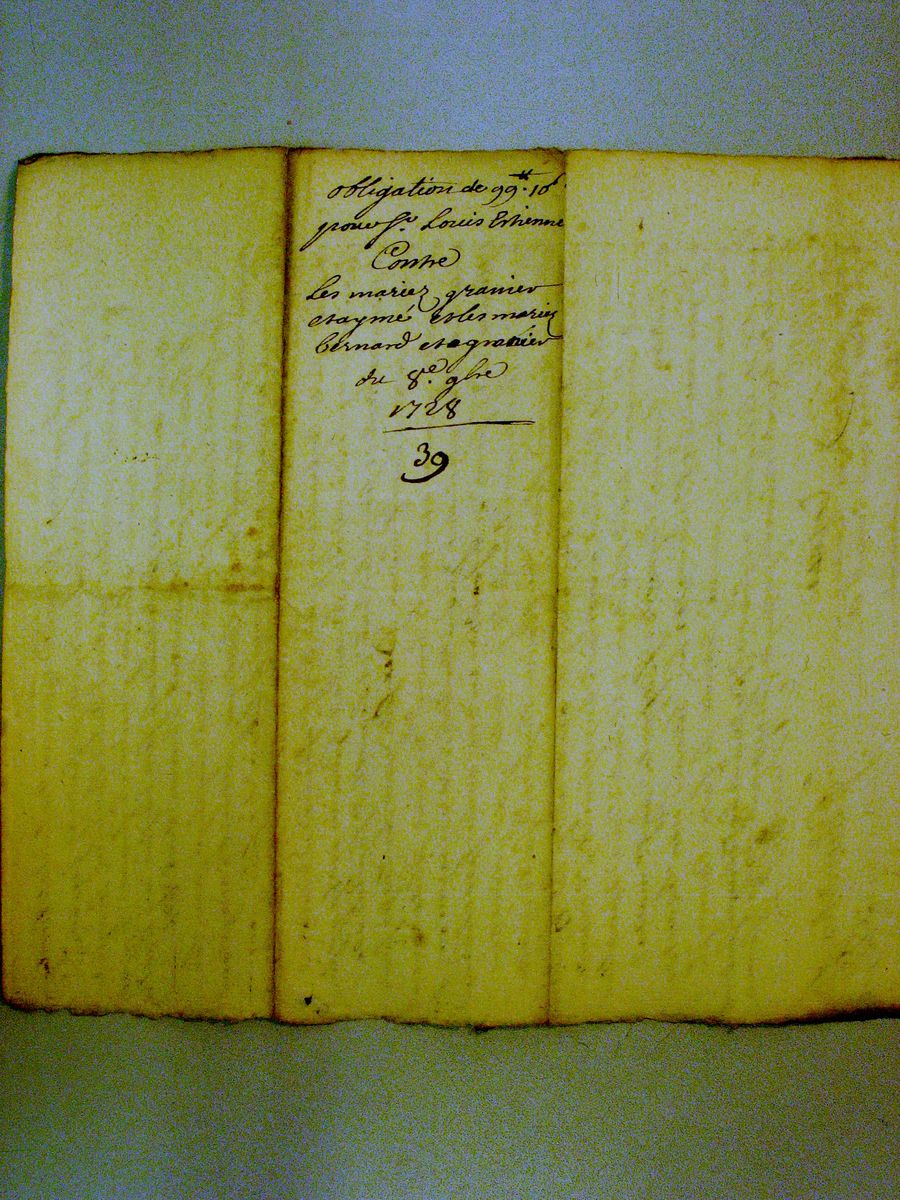 obligation de 99.# 10s
pour Sr. Louis Estienne
Contre
Les mariez granier
et aymé et les mariez
bernard et agranier
du 8e. 9bre
1728
39